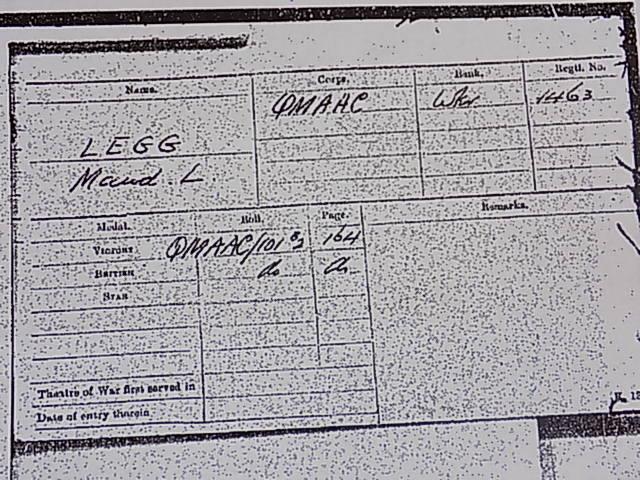 Name. Corps. Rank. Regtl. No.
QMAAC Wkr 1463
LEGG
Maud. L.
Medal. Roll. Page. Remarks.
Victory QMAAC/101 B2 164
British do do
Star
Theatre of War first served in
Date of entry therein
K. 13